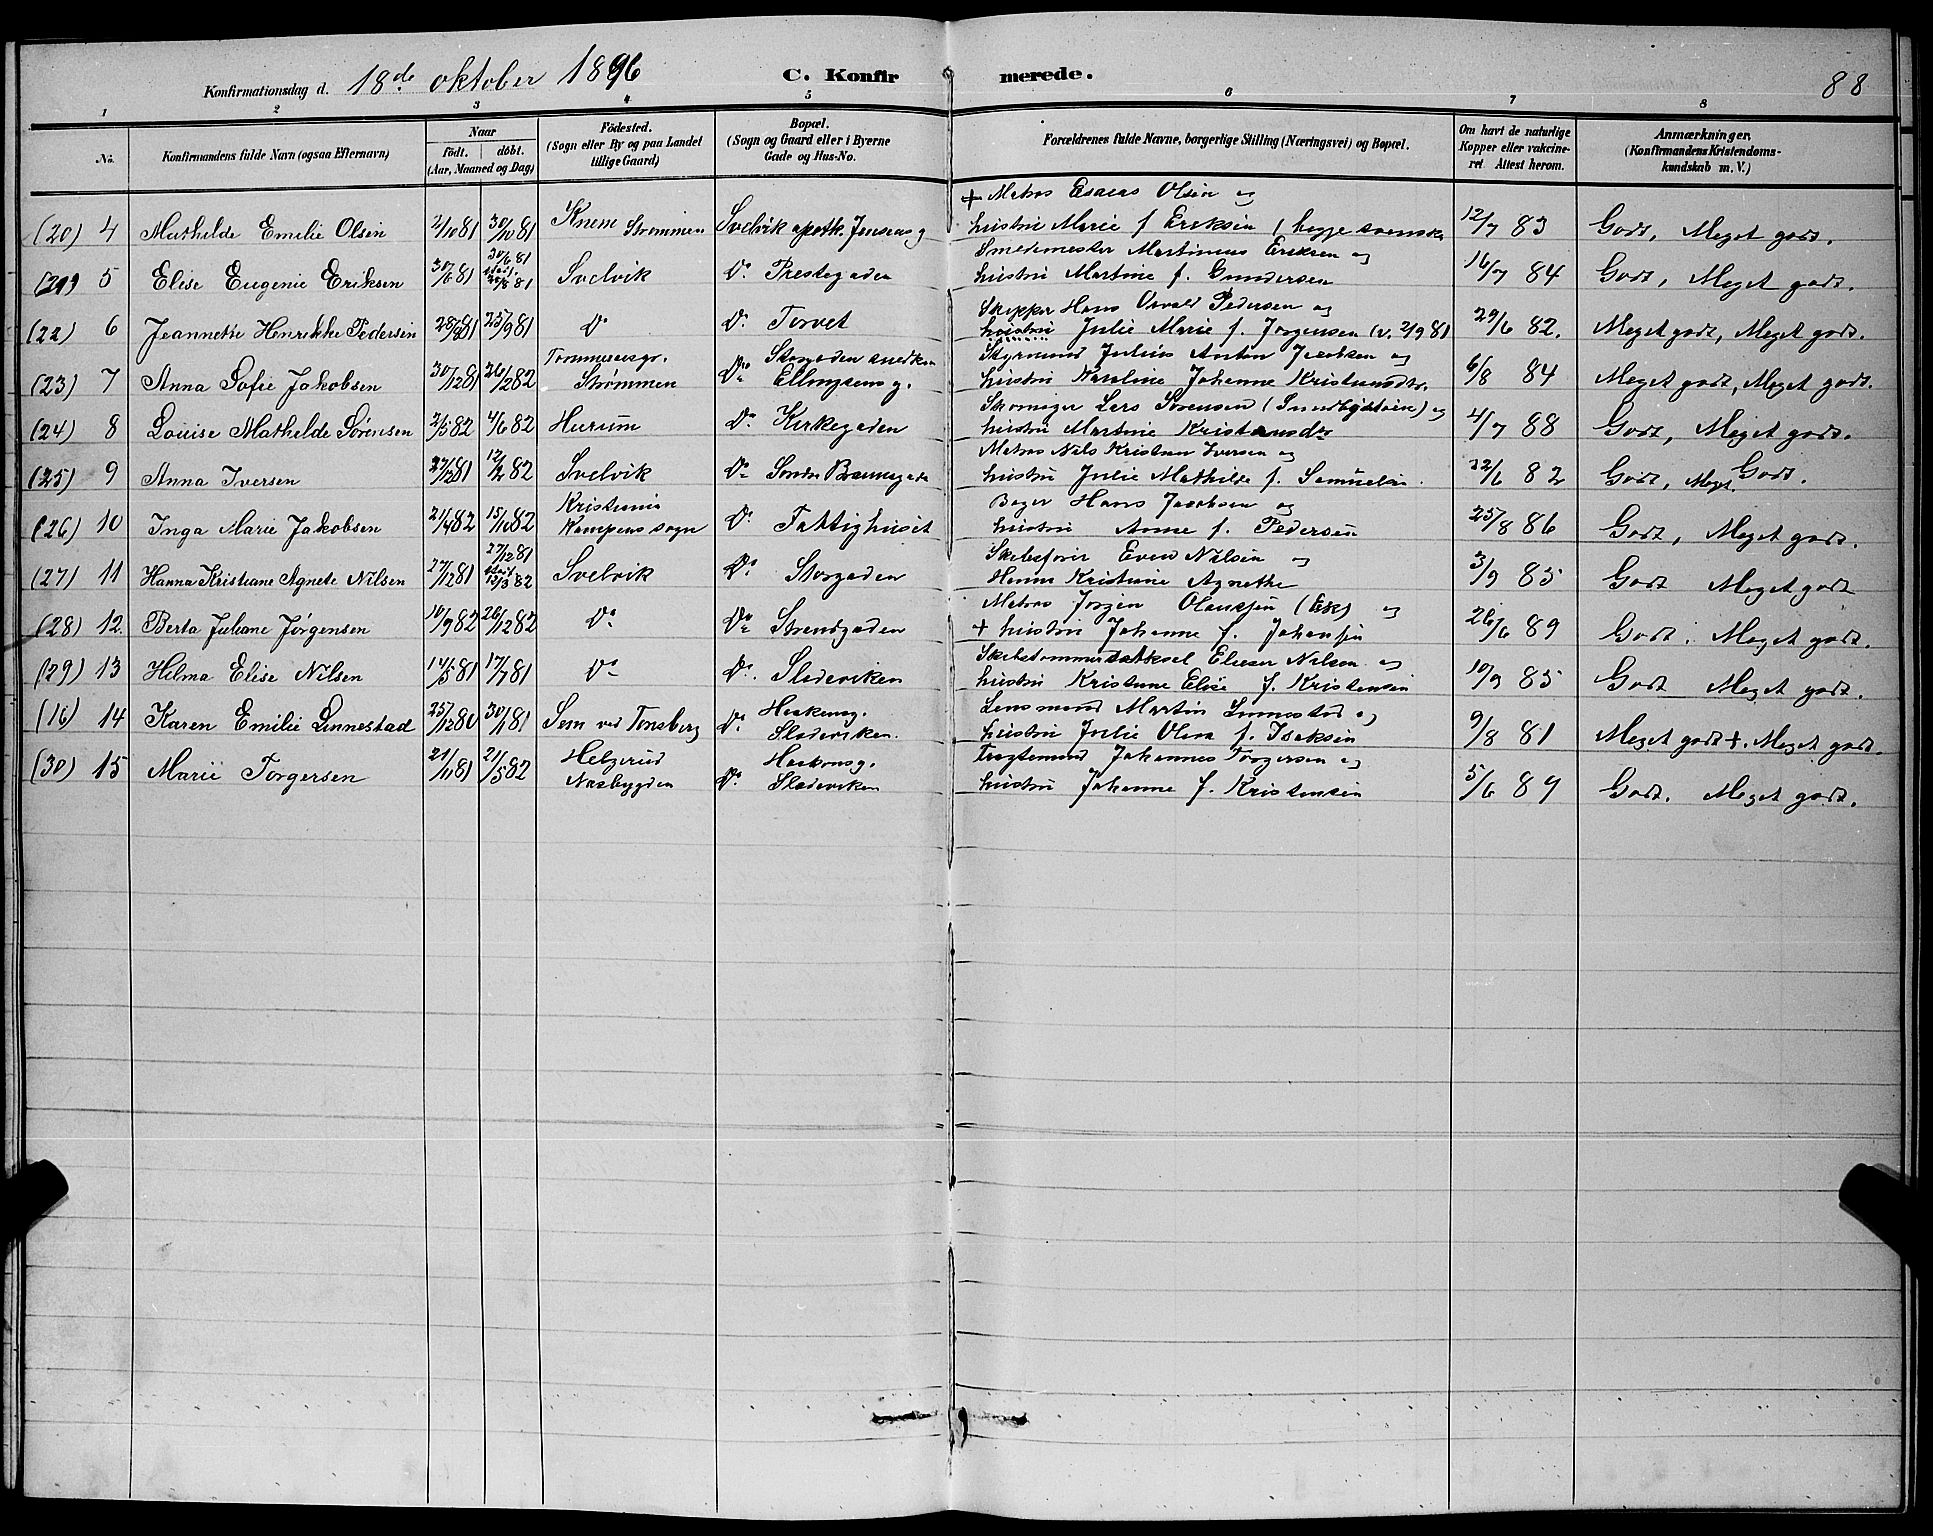 Konfirmationsdag d. 18de oktober 1896 C. Konfirmerede. 88
1 2 3 4 5 6 7 8
No. Konfirmandens fulde Navn (ogsaa Efternavn) Naar födt. döbt. (Aar, Maaned og Dag) Födested. (Sogn eller By og paa Landet tillige Gaard) Bopæl. (Sogn og Gaard eller i Byerne Gade og Hus-No. Forældrenes fulde Navne, borgerlige Stilling (Næringsvei) og Bopæl. Om havt de naturlige Kopper eller vakcineret Attest herom. Anmærkninger. (Konfirmandens Kristendomskundskab m. V.)
+ Matros Esaias Olsen og
(20) 4 Mathilde Emilie Olsen 2/10 81 30/10 81 Strømmen Svelvik apoth. Jensens g hustru Marie f Eriksen (begge svenske 12/7 83 Godt, Meget godt.
30/6 81 Smedemester Martinius Eriksen og
(21) 5 Elise Eugenie Eriksen 30/6 81 81 Svelvik Do Prestegaden hustru Martine f. Gundersen 16/7 84 Godt, Meget godt.
Skipper Hans Osvald Pedersen og
(22) 6 Jeannette Henrikke Pedersen 81 25/9 81 Do Do Torvet hustru Julie Marie f. Jørgensen (v. 2/9 81 29/6 82. Meget godt, Meget godt.
Storgaden snedker Styrmand Julius Anton Jacobsen og
(23) 7 Anna Sofie Jakobsen 30/12 81 26/2 82 Strømmen Do Ellingsens g. hustru Karoline Johanne Kristiansdtr. 6/8 84 Meget godt, Meget godt.
Skomager Lars Sørensen og
(24) 8 Louise Mathilde Sørensen 2/5 82 4/6 82 Hurum Do Kirkegaden hustru Martine Kristiansdtr 4/7 88 Godt, Meget godt.
Matros Nils Kristian Iversen og
(25) 9 Anna Iversen 27/12 81 12/2 82 Svelvik Do Søndre Brannsgade hustru Julie Mathilde f. Samuelsen. 22/6 82 Godt, Meget Godt.
Kristiania Bager Hans Jacobsen og
(26) 10 Inga Marie Jakobsen 21/4 82 15/10 82 Kampens sogn Do Fattighuset hustru Anne f. Pedersen 25/8 86 Godt, Meget godt.
27/12 81 Skibsfører Even Nilsen og
(27) 11 Hanna Kristiane Agnete Nilsen 27/12 81 12/3 82 Svelvik Do Storgaden Hanna Kristine Agnethe 3/9 85 Godt Meget godt
Matros Jørgen Olaussen og
(28) 12. Berta Juliane Jørgensen 10/9 82 26/12 82 Do Do Strandgaden + hustru Johanne f. Johansen 26/6 89 Godt. Meget godt.
Elieser Nilsen og
(29) 13 Helma Elise Nilsen 14/5 81 17/7 81 Do Do. Sladeviken hustru Kristiane Elise f. Kristensen 10/9 85 Godt Meget godt.
Haakensg. Lensmand Martin Linnestad og
(16) 14 Karen Emilie Linnestad 25/12 80 30/1 81 Sem ved Tønsberg Do Sladeviken. hustru Julie Olava f. Isaksen 9/8 81 Meget godt +. Meget godt.
Helgerud Haakonsg. Fragtemand Johannes Torgersen og
(30) 15 Marie Torgersen 21/11 81 21/5 82 Næsbygden Do Sladeviken hustru Johanne f. Kristensen 5/6 89 Godt. Meget godt.